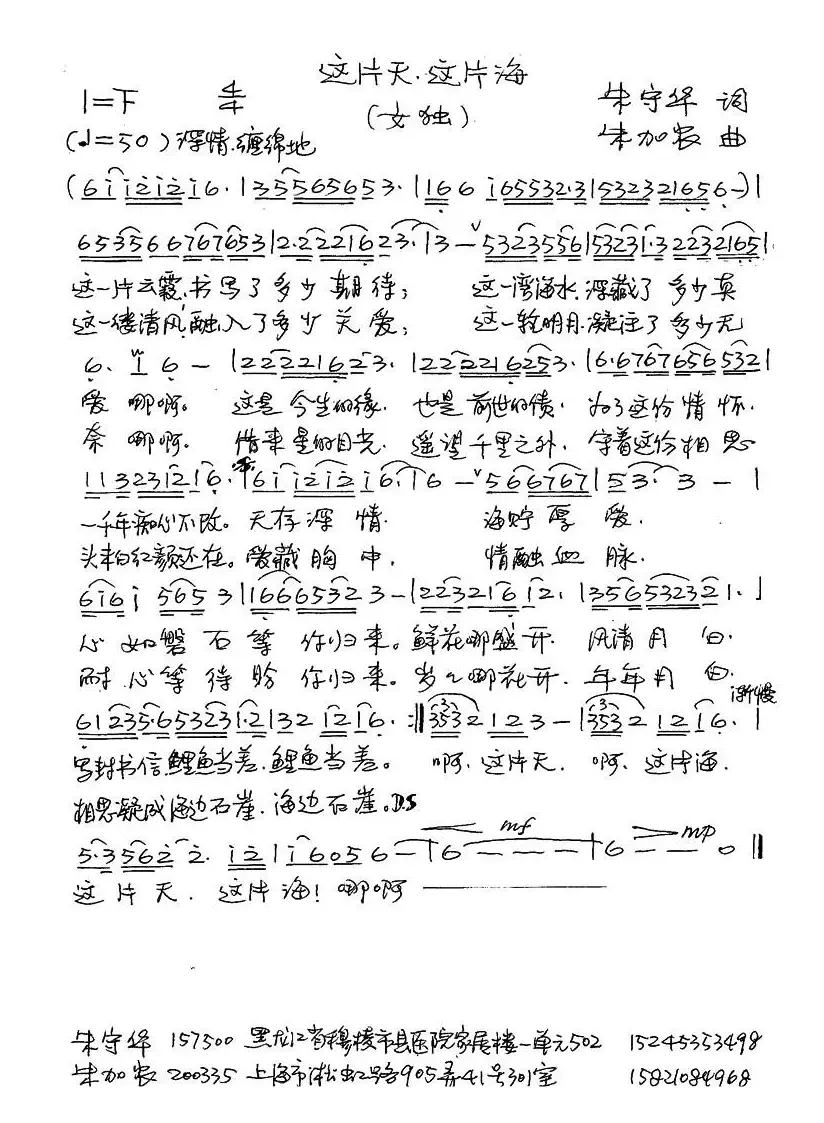 这片天.这片海
1=F 4/4 (女独) 朱守华 词
(♩=50)深情.缠绵地 朱加农 曲
(6 i i 2 i 2 i 6. | 3 5 5 6 5 6 5 3. | 1 6 6 i 6 5 5 3 2.3 | 5 3 2 3 2 1 6 5 6 -) |
6 5 3 5 6 6 7 6 7 6 5 3 | 2.2 2 2 1 6 2 3. | 3 - 5 3 2 3 5 5 6 | 5 3 2 3 1.3 2 2 3 2 1 6 5 |
这一片云霞,书写了多少期待; 这一湾海水.深藏了多少真
这一缕清风,融入了多少关爱; 这一轮明月.凝注了多少无
6. 1 6 - | 2 2 2 2 2 1 6 2 3. | 2 2 2 2 2 1 6 2 5 3. | 6.6 7 6 7 6 5 6 5 3 2 |
爱哪啊。这是今生的缘.也是前世的债.为了这份情怀.
奈哪啊。借来星的目光.遥望千里之外.守着这份相思
1 1 3 2 3 1 2 1 6. | 6 i i 2 i 2 i 6. | 6 - 5 6 6 7 6 7 | 5 3. 3 - |
一千年痴心不改。天存深情. 海贮厚爱.
头未白红颜还在。爱藏胸中. 情融血脉.
6 i 6 i 5 6 5 3 | 1 6 6 6 5 3 2 3 - | 2 2 3 2 1 6 1 2. | 3 5 6 5 3 2 3 2 1. |
心如磐石等你归来。鲜花哪盛开.风清月白.
耐心等待盼你归来。岁岁哪花开.年年月白. 渐慢
6 1 2 3 5.6 5 3 2 3 1.2 | 3 2 1 2 1 6. :‖ 3 5 3 2 1 2 3 - | 3 5 3 2 1 2 1 6. |
写封书信,鲤鱼当差.鲤鱼当差。 啊.这片天. 啊.这片海.
相思凝成海边石崖.海边石崖。D.S
mf mp
5.3 5 6 2 2. i 2 | i 6 0 5 6 - | 6 - - - | 6 - - 0 ‖
这片天. 这片海!哪啊————
朱守华 157500 黑龙江省穆棱市县医院家属楼一单元502 15245353498
朱加农 200335 上海市淞虹路905弄41号301室 15821084968